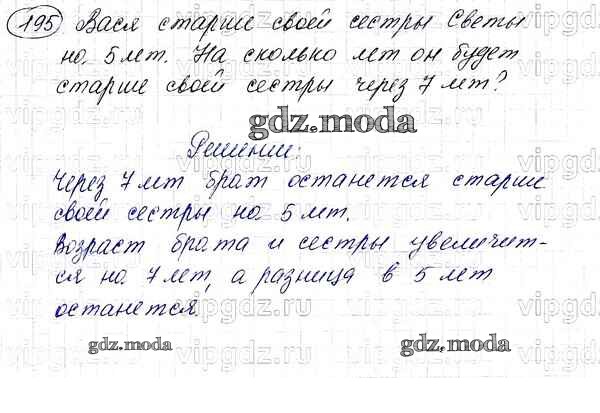 195 Вася старше своей сестры Светы
на 5 лет. На сколько лет он будет
старше своей сестры через 7 лет?
gdz.moda
Решение:
Через 7 лет брат останется старше
своей сестры на 5 лет.
Возраст брата и сестры увеличит-
ся на 7 лет, а разница в 5 лет
останется.
gdz.moda gdz.moda